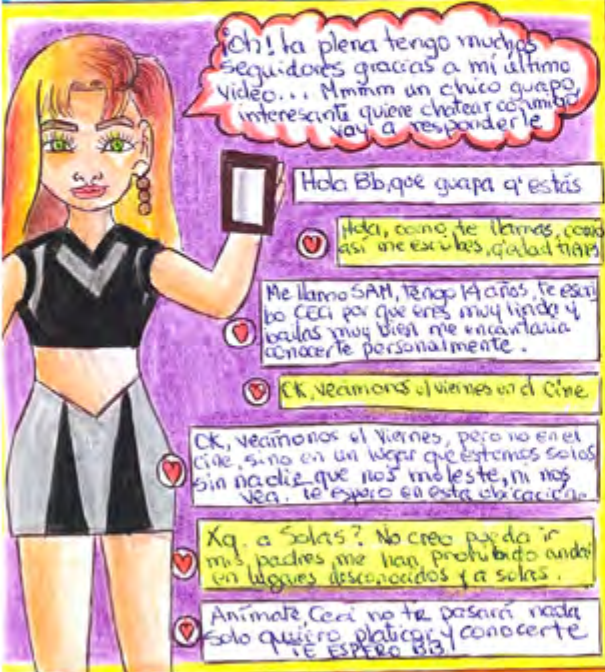 ¡Oh! la plena tengo muchos
seguidores gracias a mi último
video... Mmmm un chico guapo,
interesante quiere chatear conmigo
voy a responderle
Hola Bb, que guapa q' estás
Hola, como te llamas, como
así me escribes, q' edad
Me llamo SAM, tengo 14 años, te escri
bo CECI por que eres muy linda y
bailas muy bien me encantaria
conocerte personalmente.
OK, veamonos el viernes en el cine
OK, veámonos el Viernes, pero no en el
cine, sino en un lugar que estemos solos
sin nadie que nos moleste, ni nos
vea. Te espero en esta ubicación.
Xq. a Solas? No creo pueda ir
mis padres me han prohibido andar
en lugares desconocidos y a solas.
Anímate, Ceci no te pasará nada
solo quiero platicar y conocerte
TE ESPERO BB